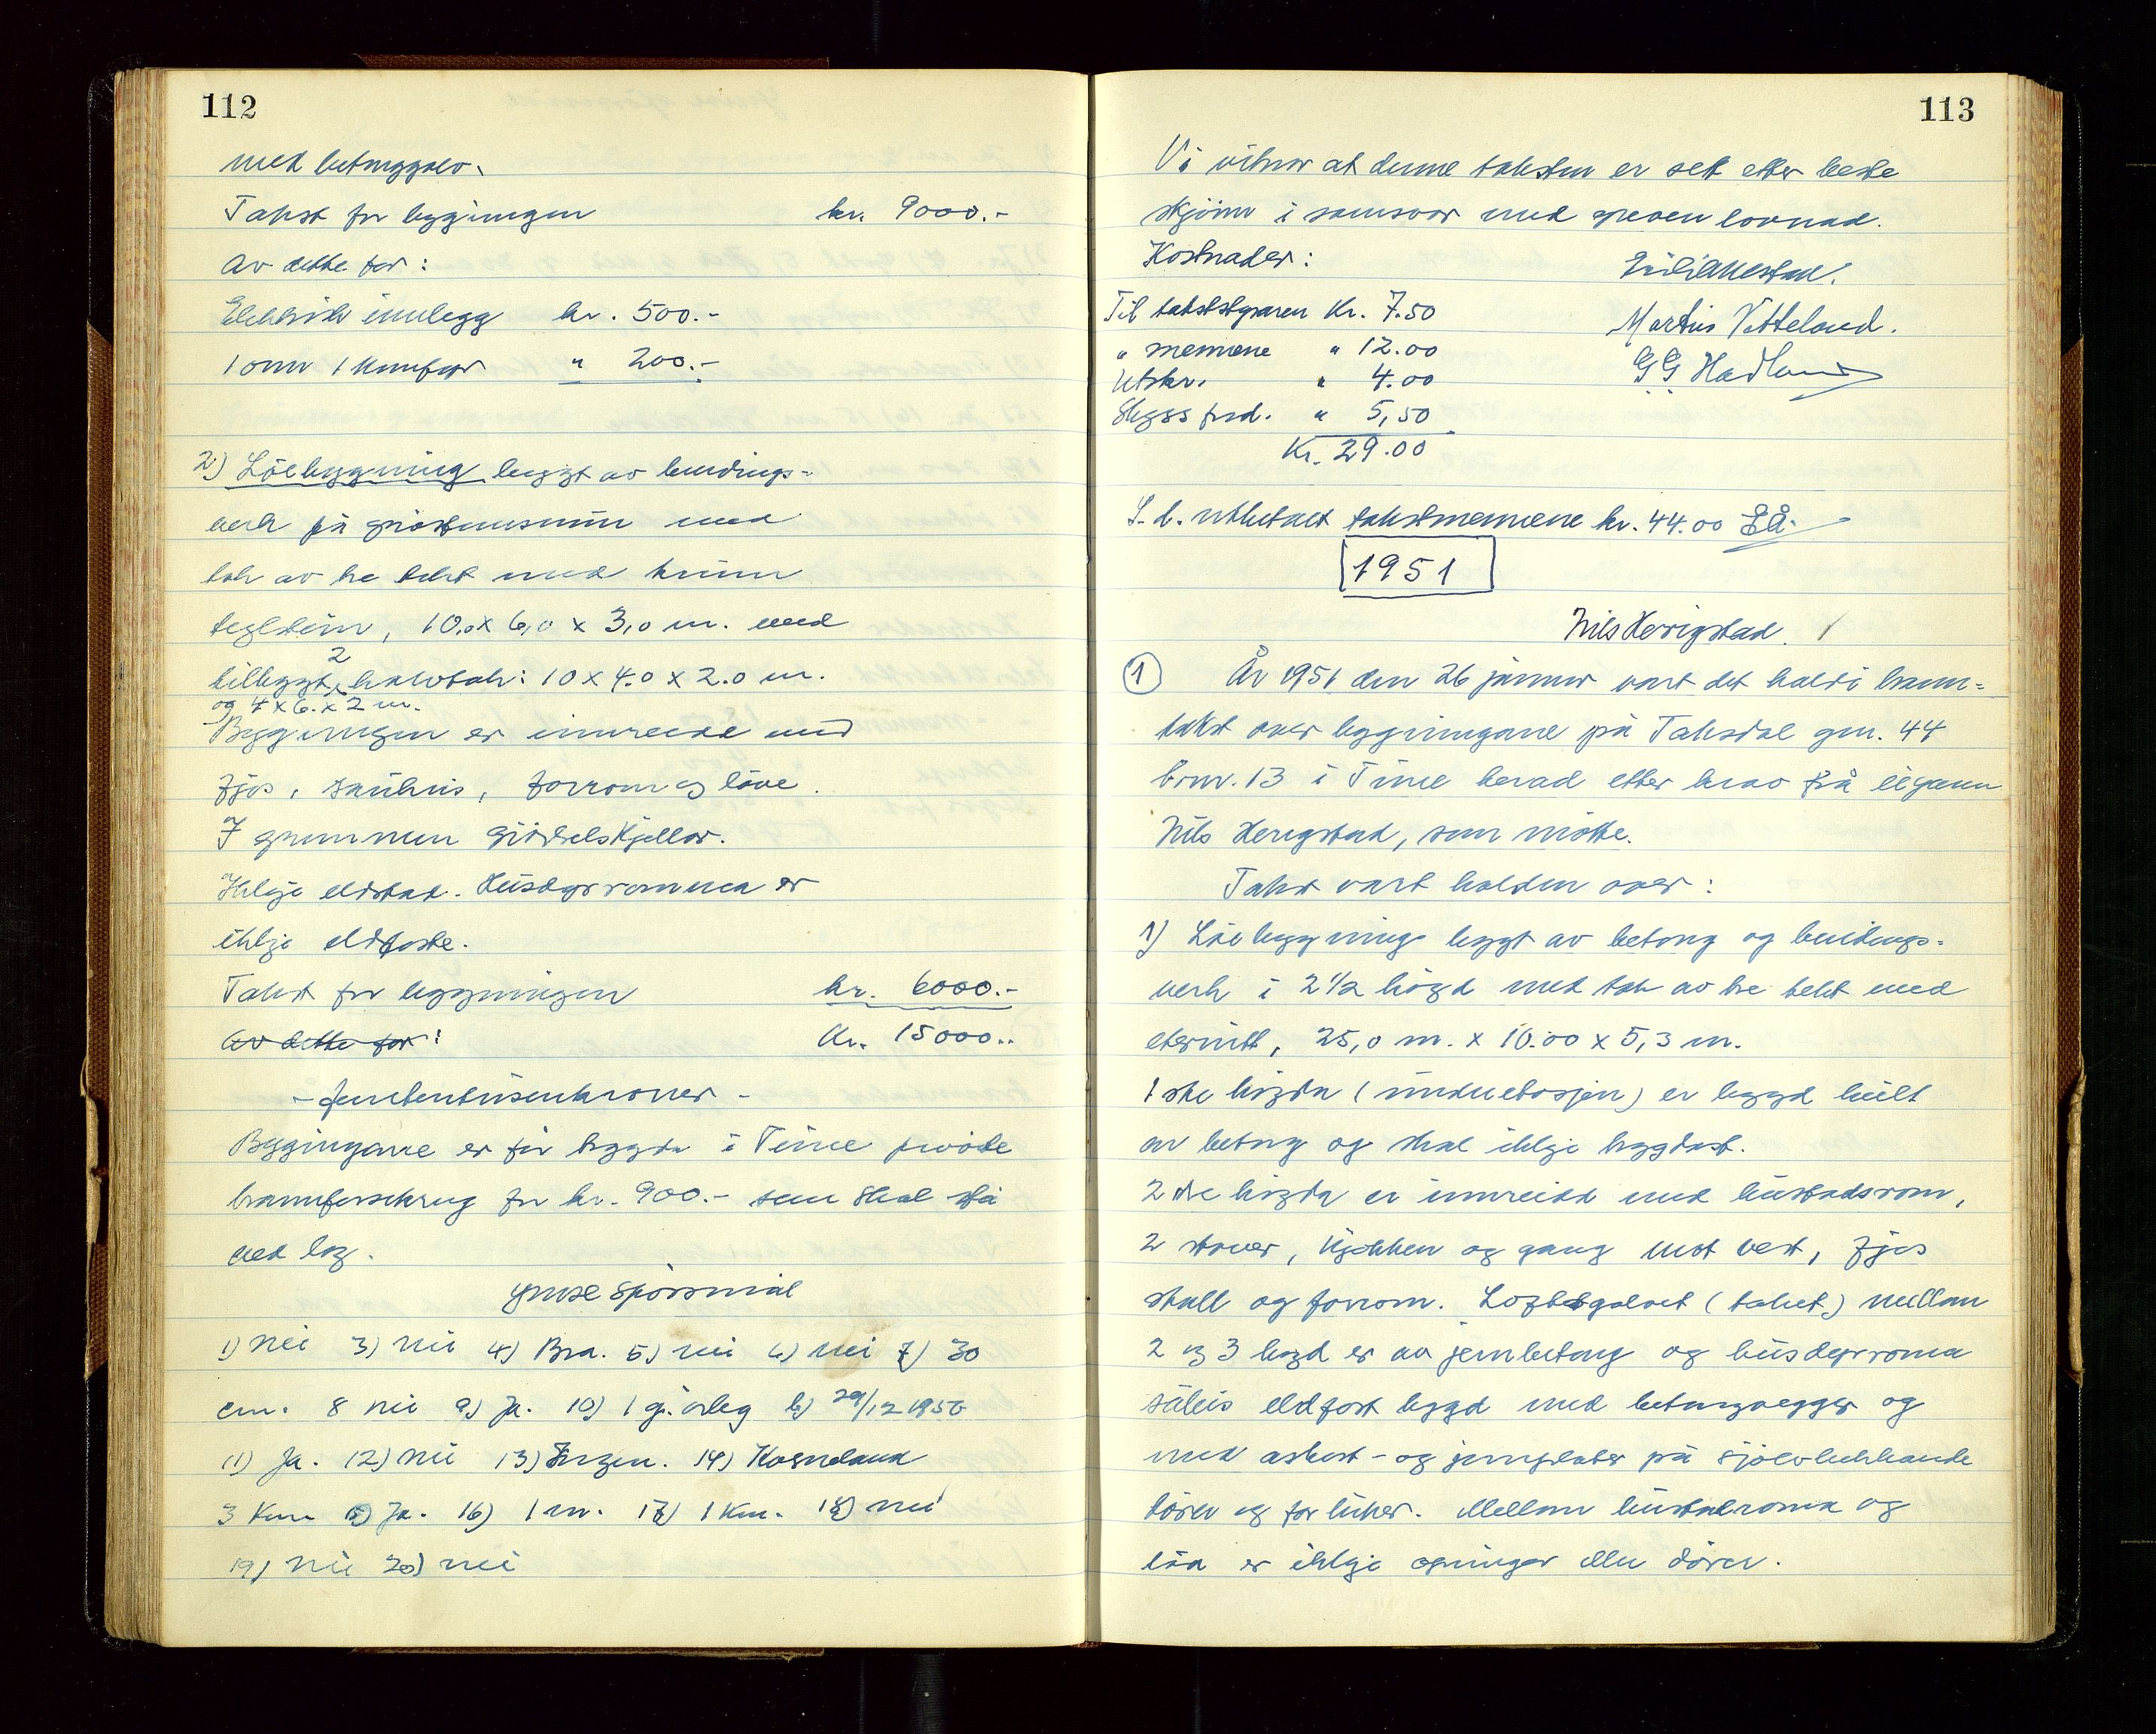 112
med betongolv.
Takst for bygningen kr. 9000.-
Av dette for:
Elektrik innlegg kr. 500.-
1 omn 1 komfyr " 200.-
2) Löebygning bygt av bindings-
verk på gråsteinsmúr med
tak av tre tekt med krúm
teglstein, 10,0 x 6,0 x 3,0 m. med
tilbygt 2 halvtak: 10 x 4.0 x 2.0 m.
og 4 x 6. x 2 m.
Bygningen er innreidd med
fjös, saúhús, forrom og löve.
I grunnen gjödselskjellar.
Ikkje eldstad. Húsdyrromma er
ikkje eldfaste.
Takst for bygningen kr. 6000.-
Av dette for: Kr. 15000..
- femtentúsenkroner -
Bygningane er för trygda i Time private
brannforsikring for kr. 900.- som skal stå
ved lag.
Ymse spörsmål
1) Nei 3) nei 4) Bra. 5) nei 6) nei 7) 30
cm. 8 nei 9) Ja. 10) 1 g. årleg b) 29/12 1950
11) Ja. 12) nei 13) Ingen. 14) Kvernaland
3 Km 15) Ja. 16) 1 m. 17) 1 Km. 18) nei
19) nei 20) nei
113
Vi vitnar at denne taksten er sett etter beste
skjönn i samsvar med gjeven lovnad.
Kostnader:
Til takststyraren Kr. 7.50
Martin Vetteland.
" mennene " 12.00
G G Hadland
Utskr. " 4.00
Skyss ferd. " 5,50
Kr. 29.00
S. d. utbetalt takstmennene kr. 44.00 EÅ.
1951
Nils Herigstad.
1 År 1951 den 26 januar vart det haldi brann-
takst over bygningane på Taksdal gnr. 44
brnr. 13 i Time herad etter krav frå eigaren
Nils Herigstad, som mötte.
Takst vart halden over:
1) Löebygning bygt av betong og bindings-
verk i 2 1/2 högd med tak av tre tekt med
eternitt, 25,0 m. x 10.00 x 5,3 m.
1 ste högda (únderetasjen) er bygd heilt
av betong og skal ikkje trygdast.
2 dre högda er innreidd med bústadsrom,
2 stover, kjökken og gang mot vest, fjös
stall og forrom. Loftsgolvet (taket) mellom
2 og 3 högd er av jernbetong og húsdyrroma
såleis eldfast bygd med betongvegger og
med asbest- og jernplater på sjölvlukkande
dörer og for lúker. Mellom bústadroma og
löa er ikkje opningar eller dörer.